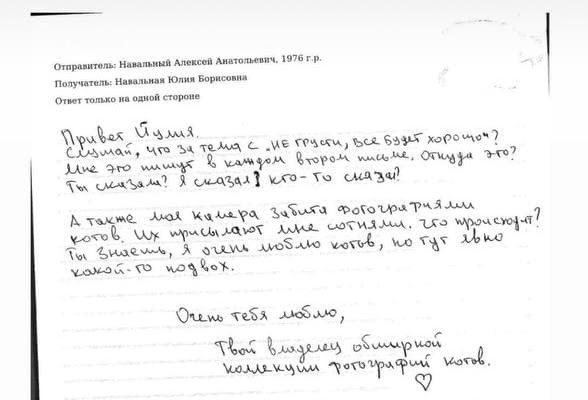 Отправитель: Навальный Алексей Анатольевич, 1976 г.р.
Получатель: Навальная Юлия Борисовна
Ответ только на одной стороне
Привет Йулия.
Слушай, что за тема с „НЕ грусти, все будет хорошо“?
Мне это пишут в каждом втором письме. Откуда это?
Ты сказала? Я сказал? кто-то сказал?
А также моя камера забита фотографиями
котов. Их присылают мне сотнями. Что происходит?
Ты знаешь, я очень люблю котов, но тут явно
какой-то подвох.
Очень тебя люблю,
Твой владелец обширной
коллекции фотографий котов.